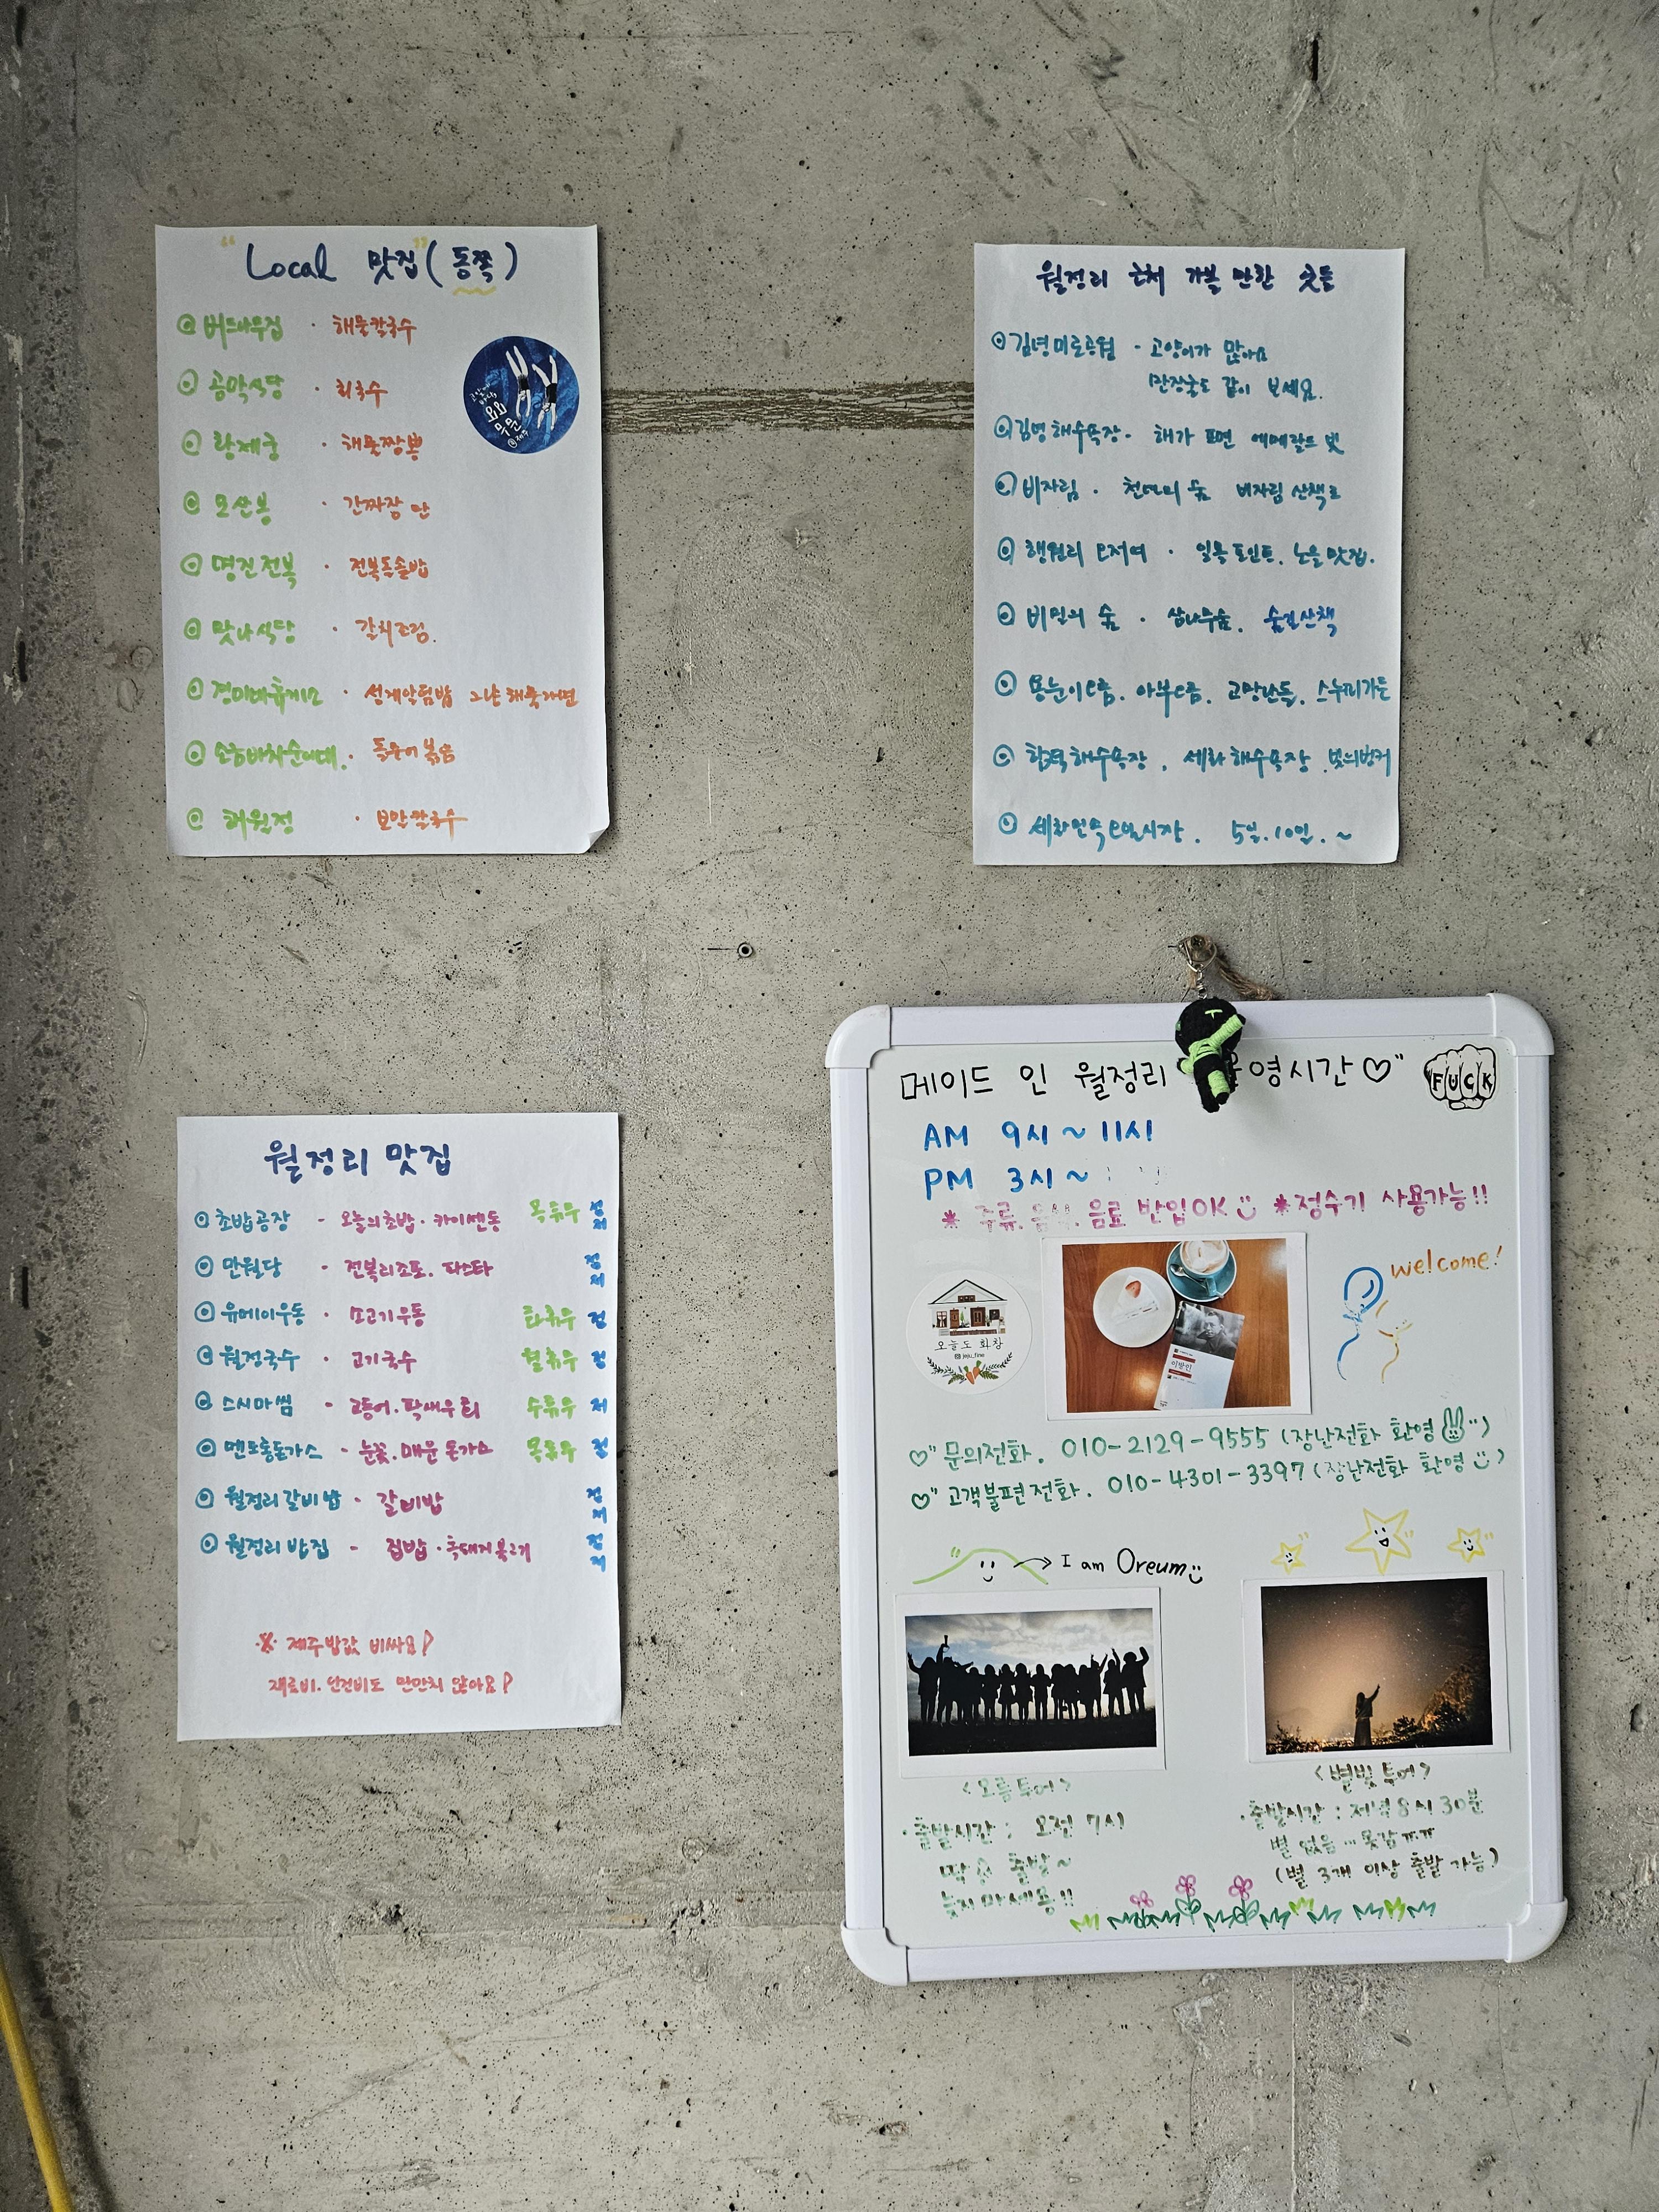 "Local 맛집" (동쪽)
◎ 버드나무집 · 해물칼국수
◎ 곰막식당 · 회국수
◎ 왕제궁 · 해물짬뽕
◎ 오산봉 · 간짜장 만
◎ 명진전복 · 전복돌솥밥
◎ 맛나식당 · 갈치조림.
◎ 경미네휴게소 · 성게알덮밥 그냥 해물라면
◎ 순이네. · 돌문어 볶음
◎ 해월정 · 보말칼국수
월정리 근처 가볼 만한 곳들
◎ 김녕미로공원 - 고양이가 많아요
만장굴도 같이 보세요.
◎ 김녕해수욕장. 해가 뜨면 에메랄드 빛
◎ 비자림 · 천년의 숲 비자림 산책로
◎ 행원리 · 일몰 포인트. 노을 맛집.
◎ 비밀의 숲 · 삼나무숲. 숲길산책
◎ 용눈이오름. 아부오름. 고망난돌. 스누피가든
◎ 해수욕장. 세화해수욕장. 빛의벙커
◎ 세화민속오일시장. 5일.10일.~
월정리 맛집
◎ 초밥공장 - 오늘의초밥 · 카이센동 목휴무 점저
◎ 만월당 - 전북리조또. 파스타 점저
◎ 유메이우동 · 소고기우동 화휴무 점
◎ 월정국수 · 고기국수 월휴무 점
◎ 스시마씸 - 고등어.딱새우 회 수휴무 저
◎ 멘도롱돈가스 - 눈꽃.매운 돈가스 목휴무 점
◎ 월정리갈비밥 · 갈비밥 점저
◎ 월정리 밥집 - 집밥 · 흑돼지불고기 점저
※ 제주밥값 비싸요?
재료비.인건비도 만만치 않아요?
메이드 인 월정리 운영시간♡"
FUCK
AM 9시 ~ 11시
PM 3시 ~
* 주류.음식.음료 반입OK *정수기 사용가능!!
오늘도 화창
jeju_fine
이방인
welcome!
♡" 문의전화. 010-2129-9555 (장난전화 환영")
♡" 고객불편전화. 010-4301-3397 (장난전화 환영)
I am Oreum
<오름투어>
· 출발시간 : 오전 7시
딱 출발~
늦지마세용!!
<별빛투어>
· 출발시간 : 저녁 8시 30분
별 없음 … 못감ㅠㅠ
(별 3개 이상 출발 가능)